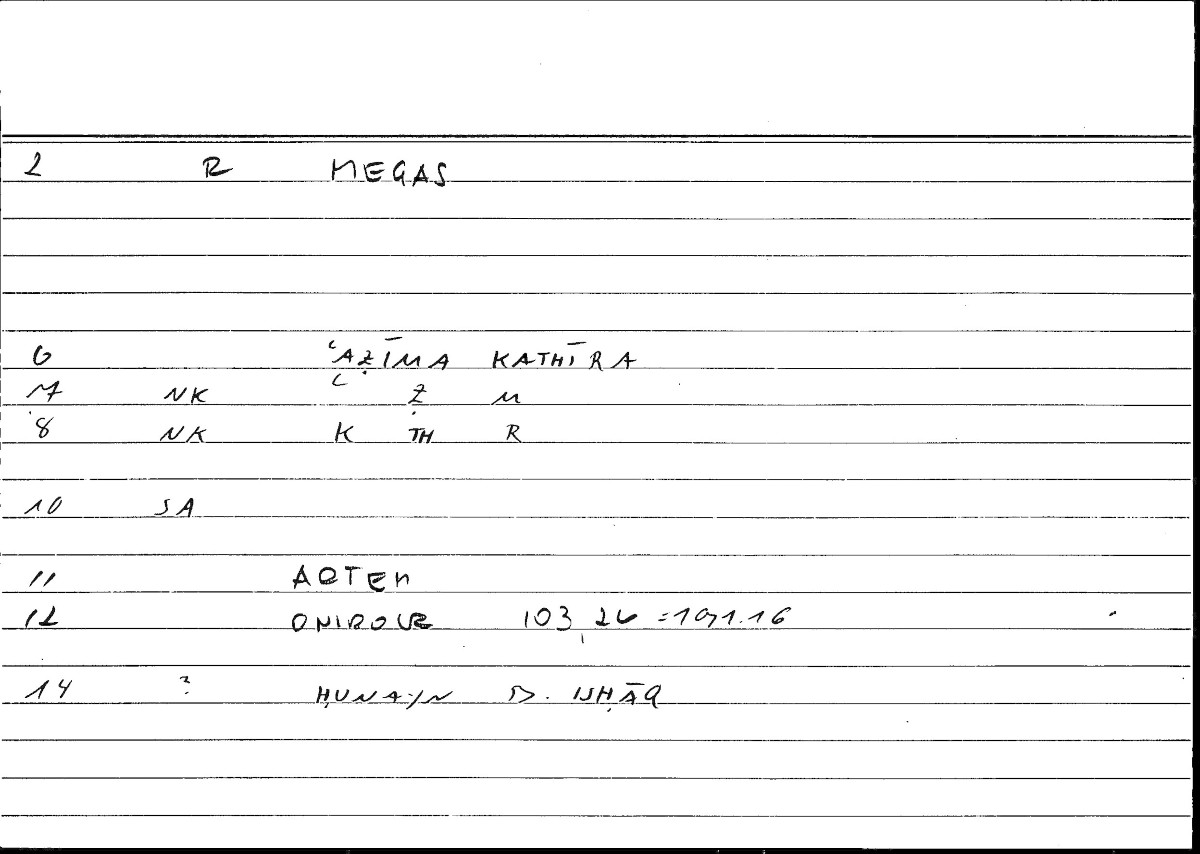 2 R MEGAS
6 ʿAẒĪMA KATHĪRA
7 NK ʿ Ẓ M
8 NK K TH R
10 SA
11 ARTEM
12 ONIROCR 103,26 = 191.16
14 ? ḤUNAYN B. ISḤĀQ